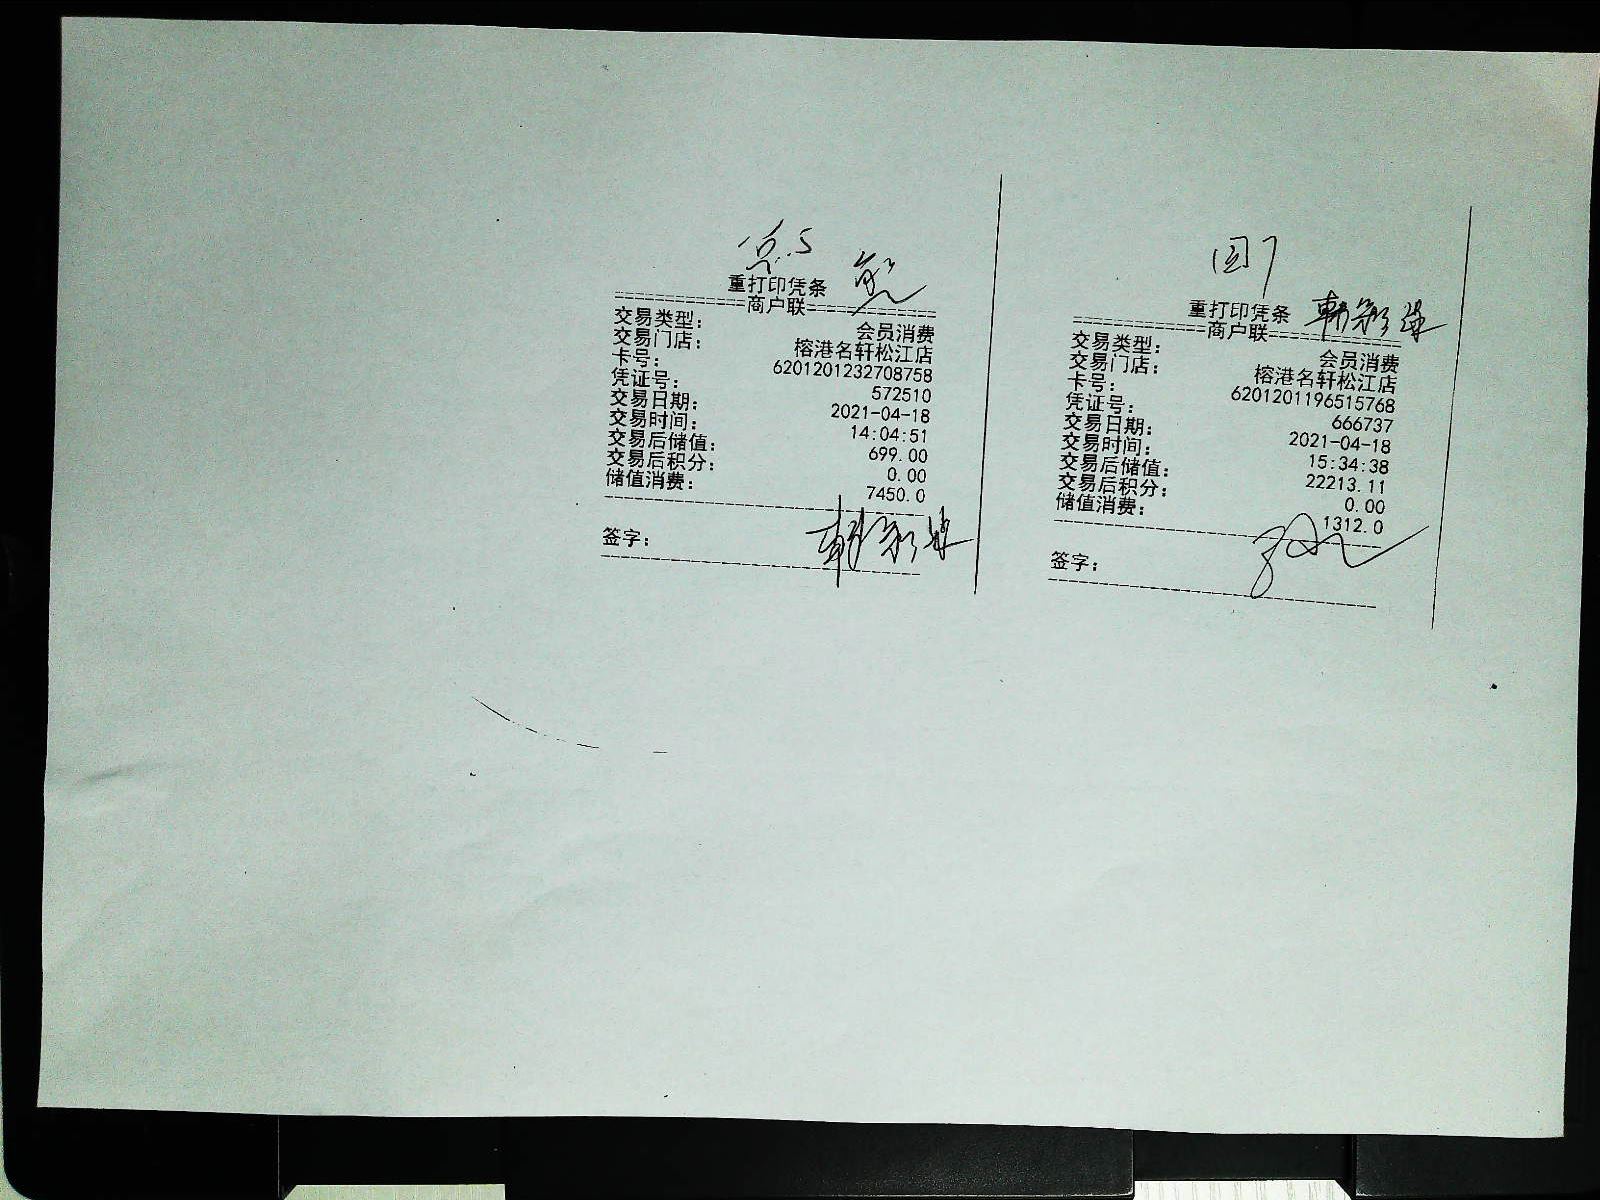 重打印凭条
==============商户联==============
交易类型: 会员消费
交易门店: 榕港名轩松江店
卡号: 6201201232708758
凭证号: 572510
交易日期: 2021-04-18
交易时间: 14:04:51
交易后储值: 699.00
交易后积分: 0.00
储值消费: 7450.0
签字:
回7
重打印凭条
==============商户联==============
交易类型: 会员消费
交易门店: 榕港名轩松江店
卡号: 6201201196515768
凭证号: 666737
交易日期: 2021-04-18
交易时间: 15:34:38
交易后储值: 22213.11
交易后积分: 0.00
储值消费: 1312.0
签字: